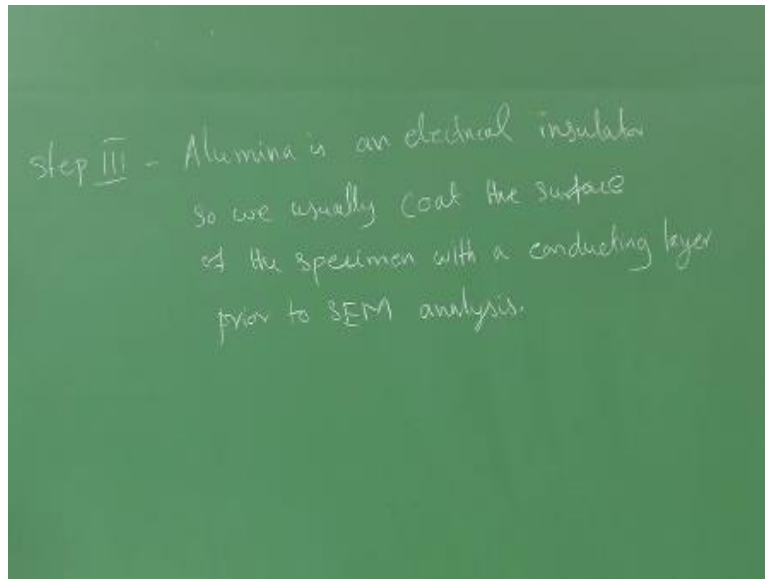 Step III - Alumina is an electrical insulator
so we usually coat the surface
of the specimen with a conducting layer
prior to SEM analysis.